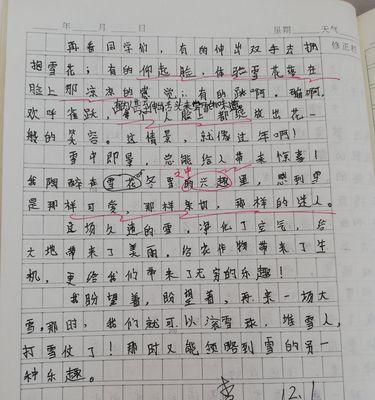 年 月 日 星期 天气
再看同学们,有的伸出双手去拥 修正栏
抱雪花;有的仰起脸,体验雪花落在
脸上那凉凉的感觉;有的跳啊,蹦啊,
欢呼雀跃,人人脸上都绽放出花一
般的笑容。这情景,就像过年啊!
雪中即景,总能给人带来惊喜!
我陶醉在雪花冬雪的兴趣里,感到雪
是那样可爱,那样亲切,那样的迷人。
这场久违的雪,净化了空气,给
大地带来了美丽。给农作物带来了生
机,更给我们带来了无穷的乐趣!
我盼望着,盼望着,再来一场大
雪,那时,我们就可以滚雪球,堆雪人,
打雪仗了!那时又能领略到雪的另一
种乐趣。
12.1